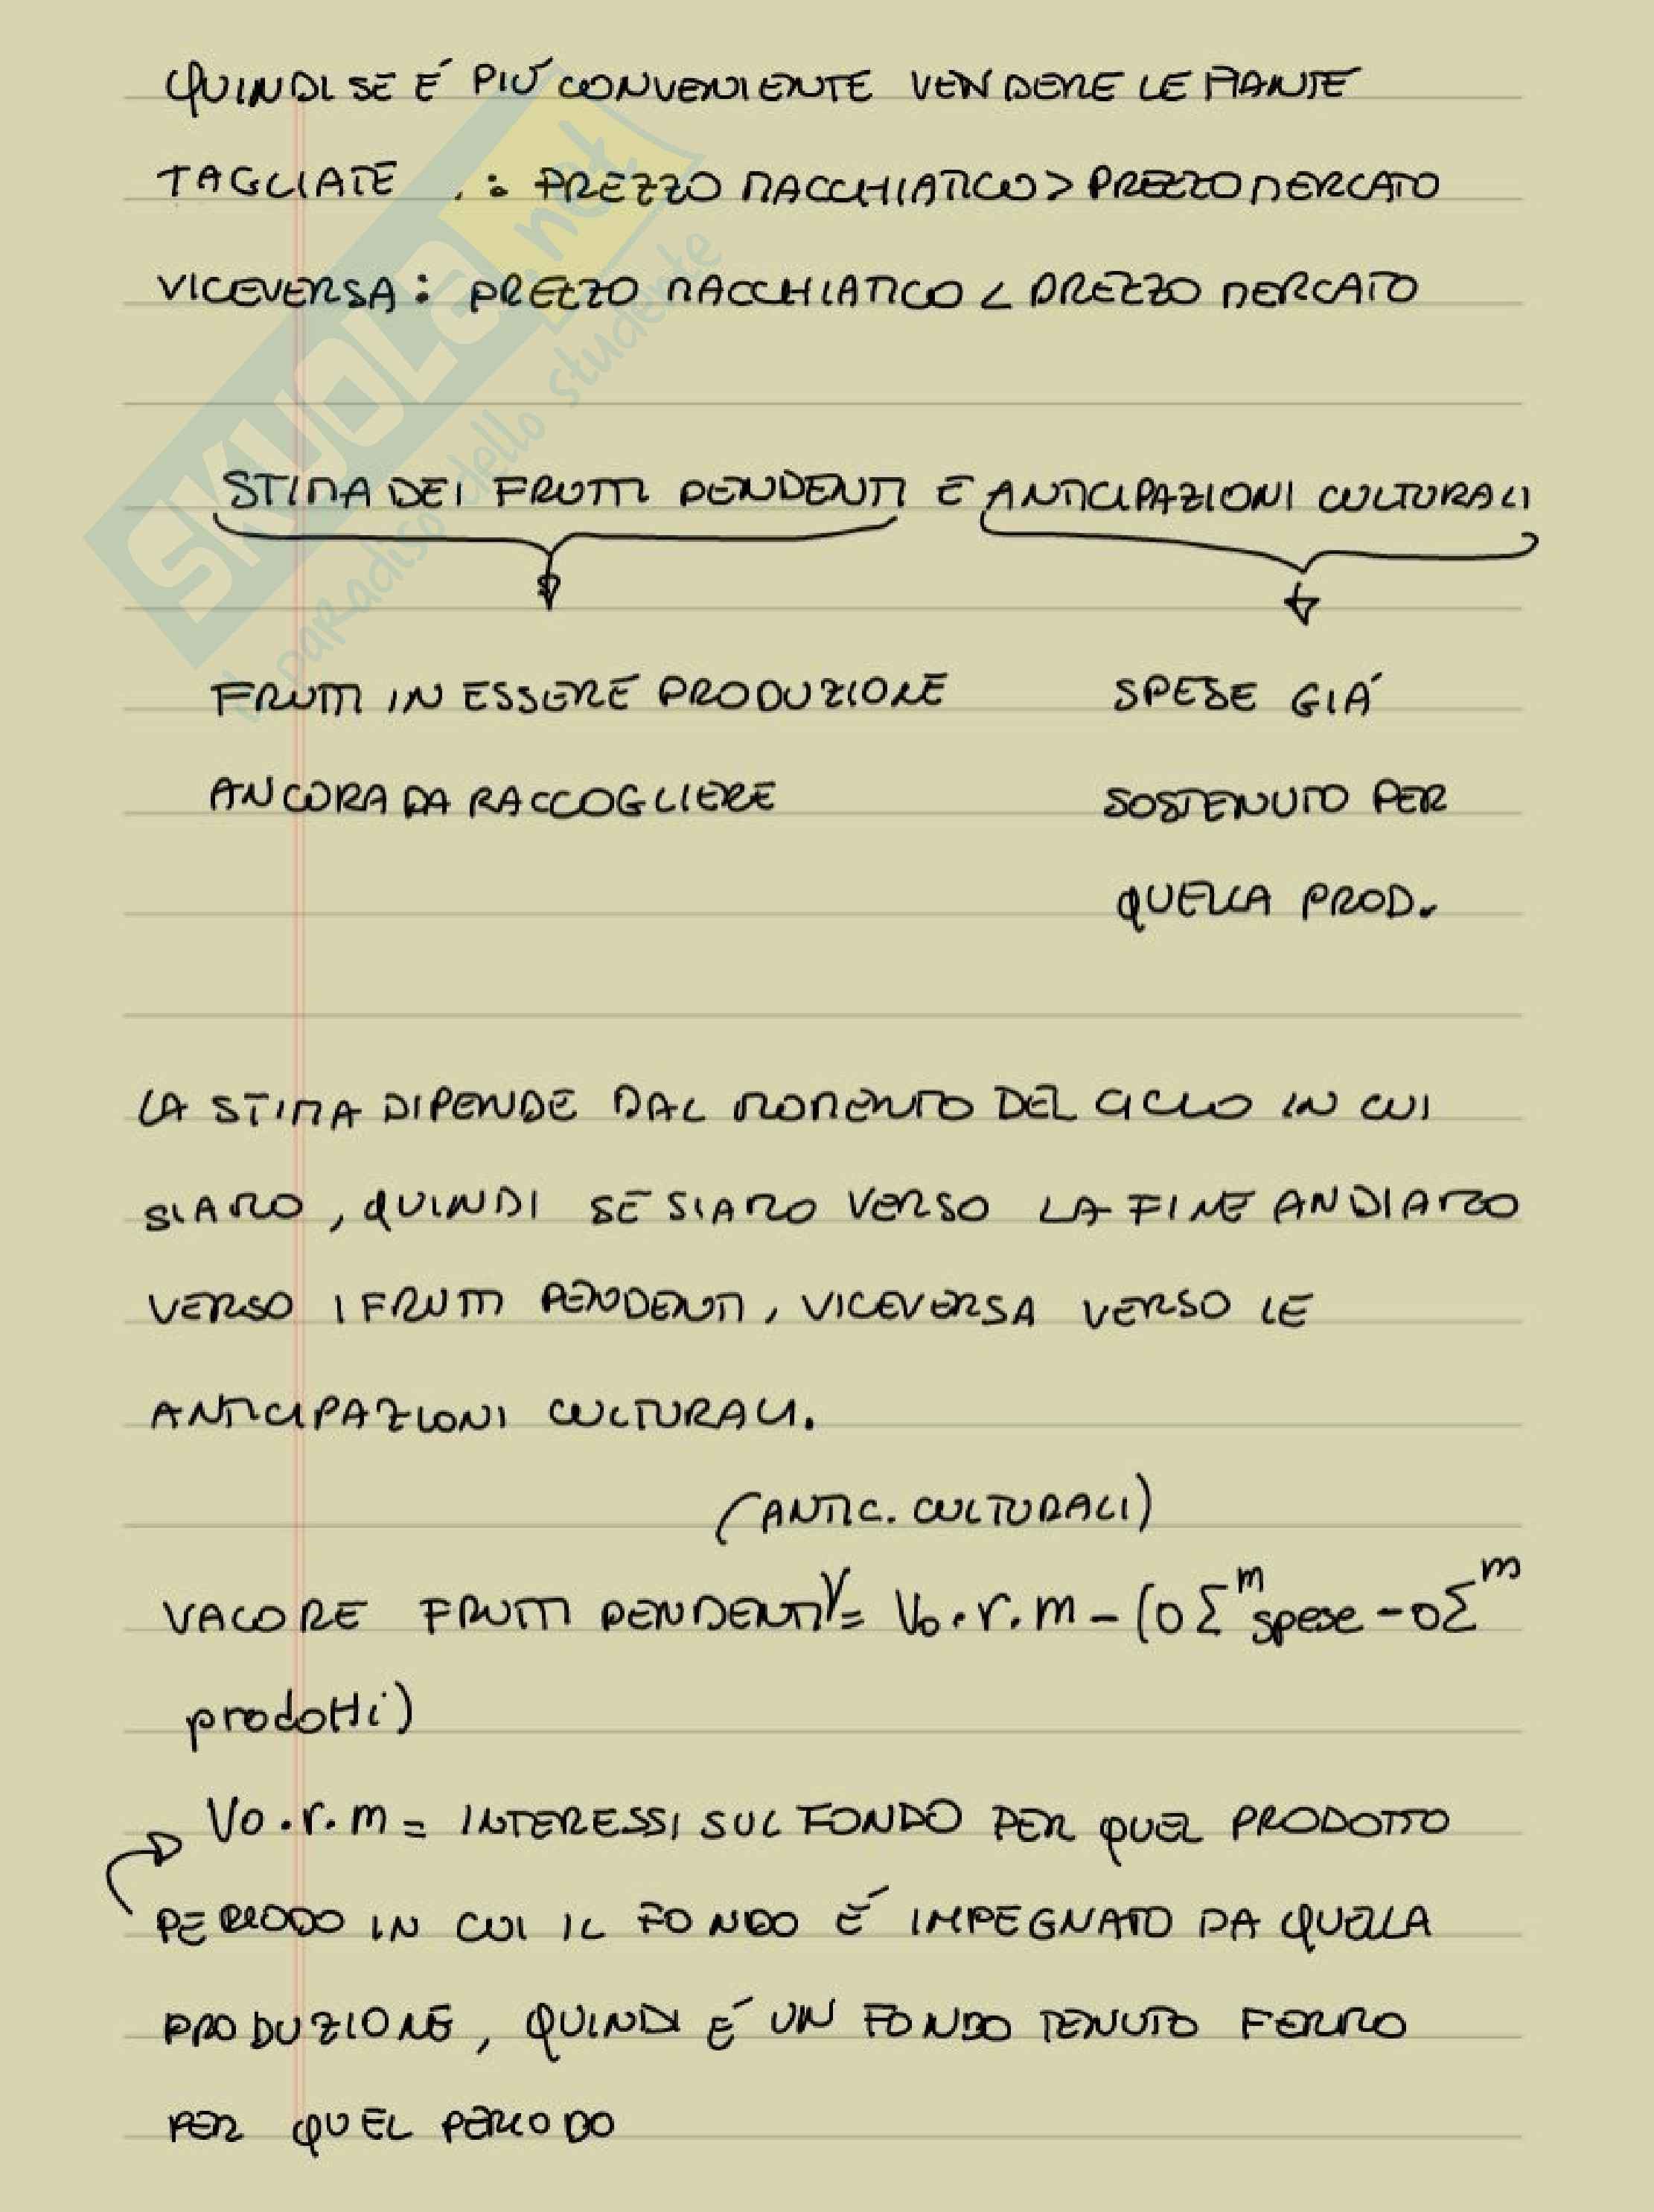 QUINDI SE É PIÚ CONVENIENTE VENDERE LE PIANTE
TAGLIATE : PREZZO MACCHIATICO > PREZZO MERCATO
VICEVERSA : PREZZO MACCHIATICO < PREZZO MERCATO
STIMA DEI FRUTTI PENDENTI E ANTICIPAZIONI CULTURALI
FRUTTI IN ESSERE PRODUZIONE
ANCORA DA RACCOGLIERE
SPESE GIÁ
SOSTENUTO PER
QUELLA PROD.
LA STIMA DIPENDE DAL MOMENTO DEL CICLO IN CUI
SIAMO, QUINDI SE SIAMO VERSO LA FINE ANDIAMO
VERSO I FRUTTI PENDENTI, VICEVERSA VERSO LE
ANTICIPAZIONI CULTURALI.
(ANTIC. CULTURALI)
VALORE FRUTTI PENDENTI = Vo.r.m - (0 Σ^m spese - 0 Σ^m
prodotti)
Vo.r.m = INTERESSI SUL FONDO PER QUEL PRODOTTO
PERIODO IN CUI IL FONDO É IMPEGNATO DA QUELLA
PRODUZIONE, QUINDI É UN FONDO TENUTO FERMO
PER QUEL PERIODO
SKUOLA.net
il paradiso dello studente